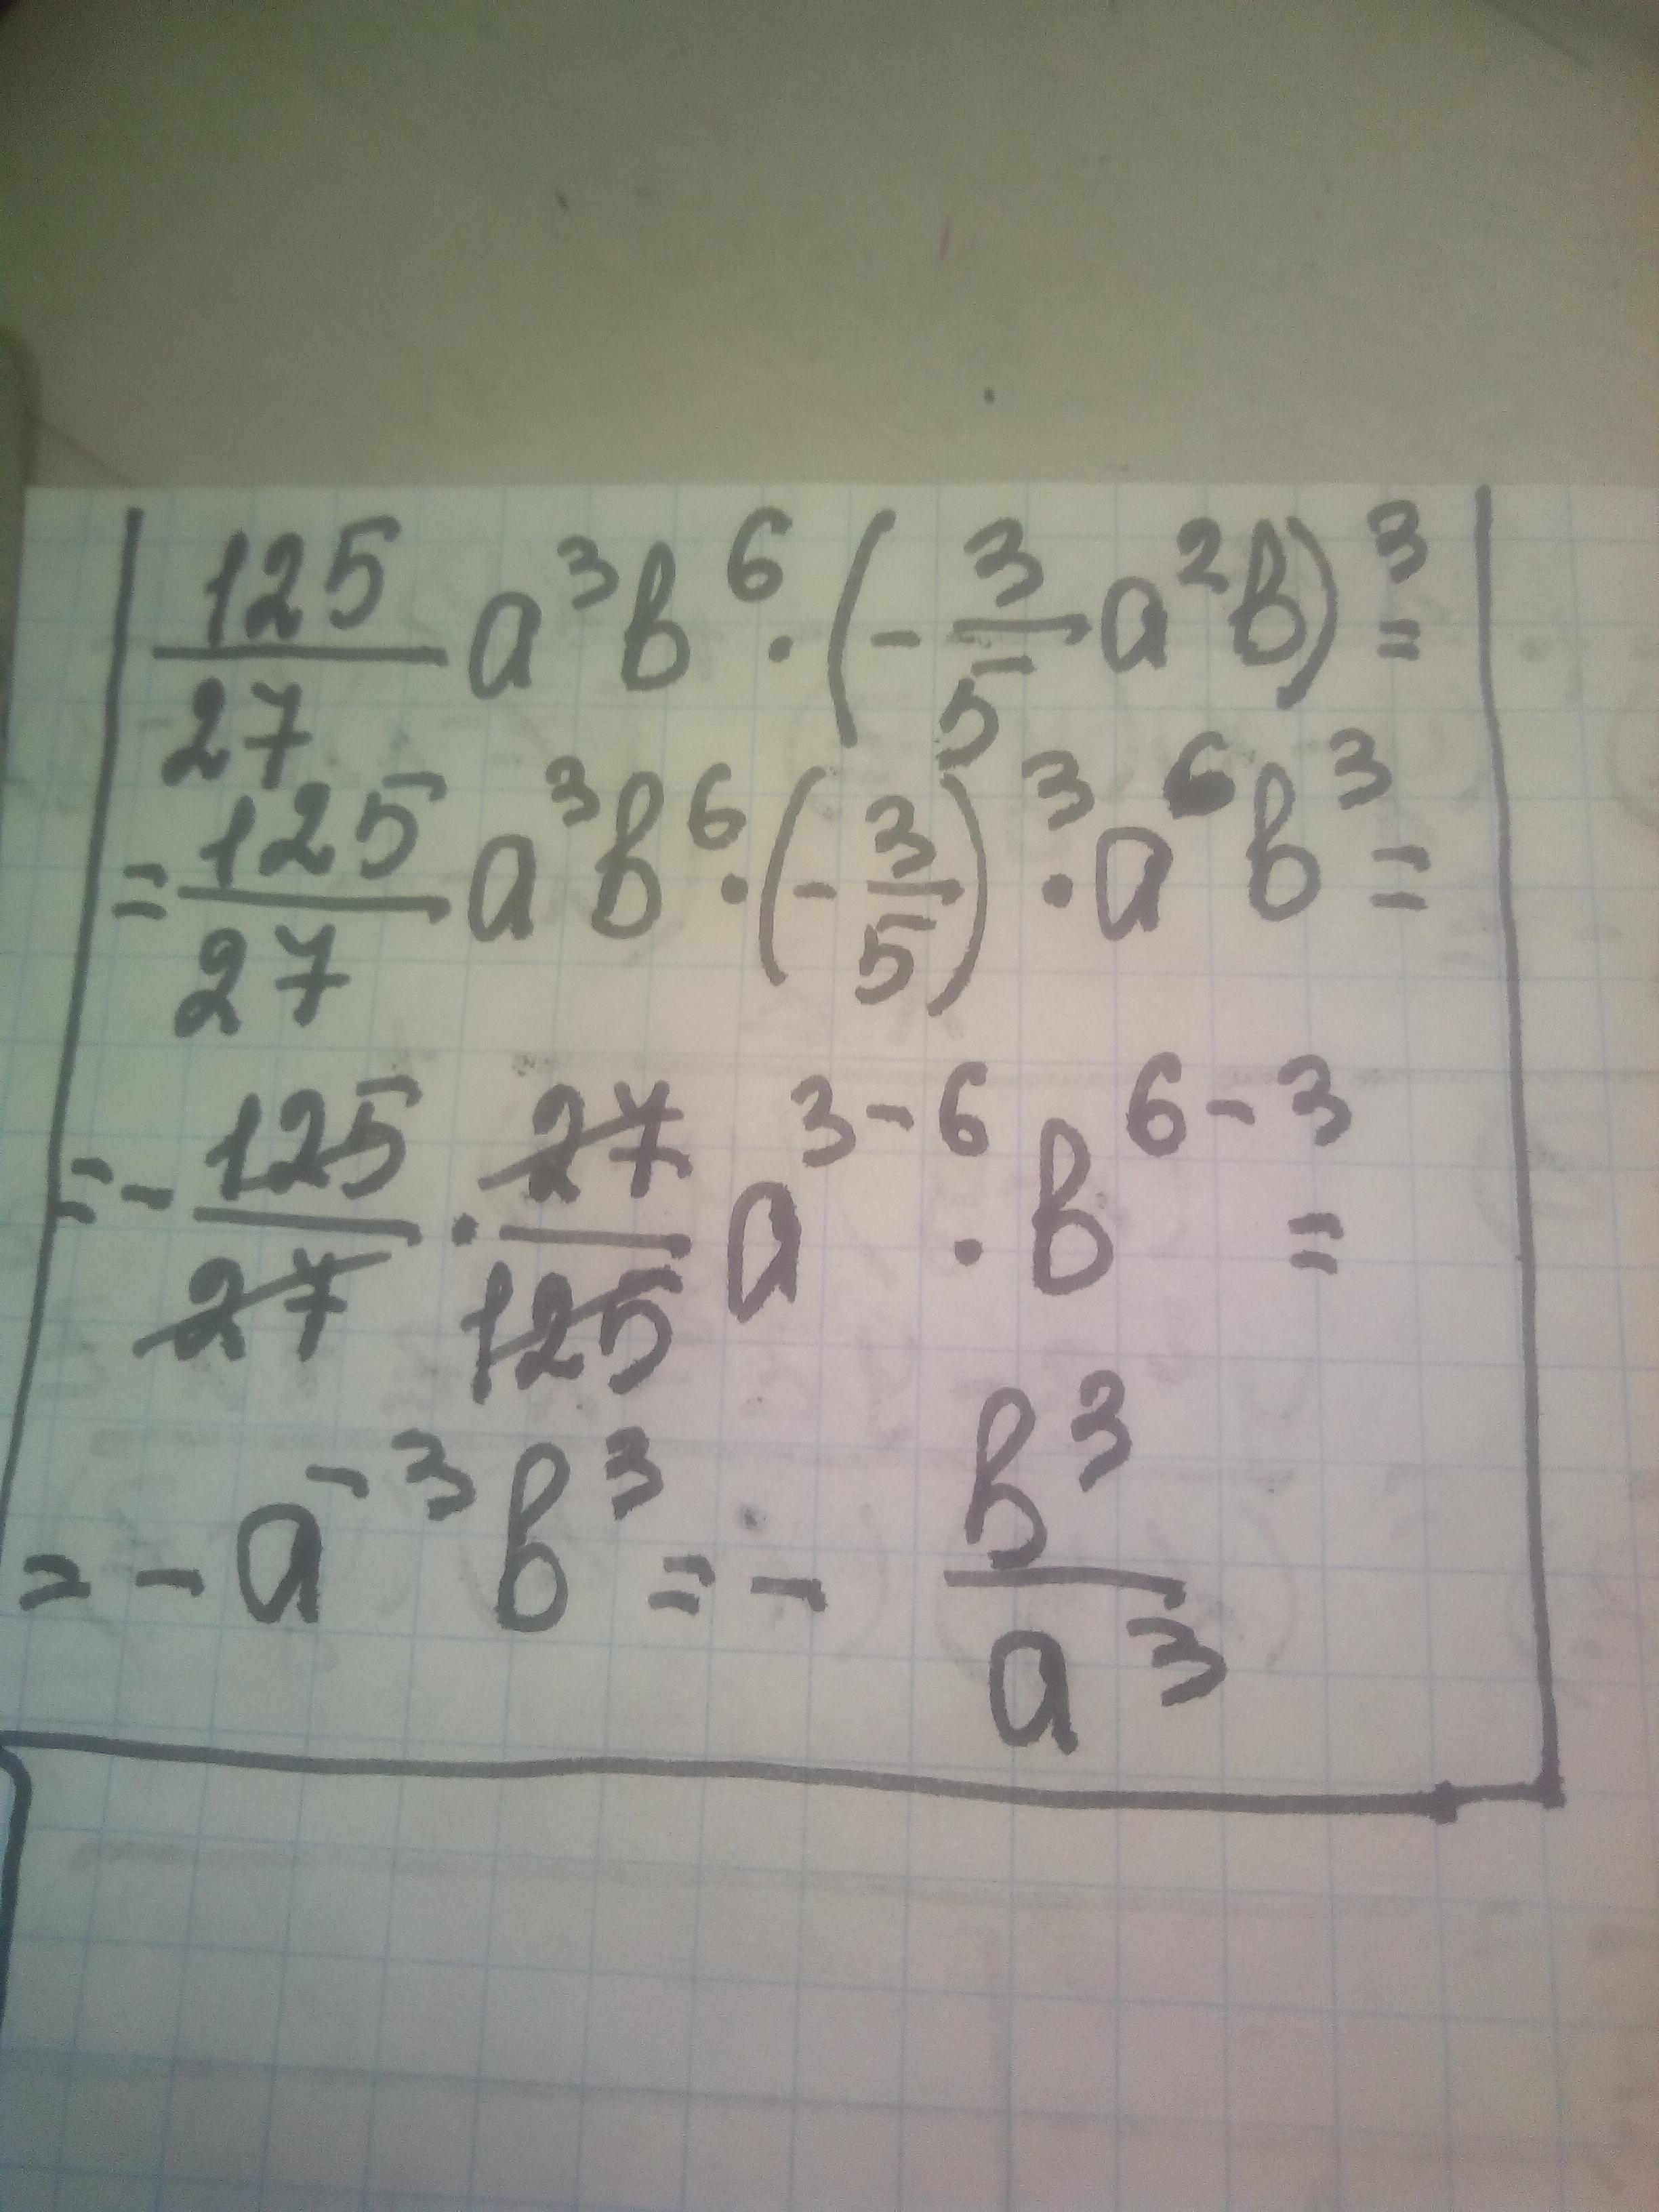 125/27 a³b⁶ · (-3/5 a²b)³ =
= 125/27 a³b⁶ · (-3/5)³ · a⁶b³ =
= - 125/27 · 27/125 a³⁻⁶ · b⁶⁻³ =
= - a⁻³ b³ = - b³/a³